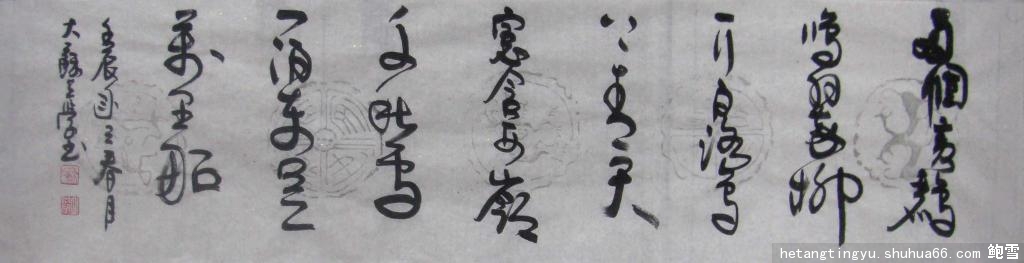 兩個黃鸝
鳴翠柳
一行白鷺
上青天
窓含西嶺
千秋雪
門泊東吳
萬里船
壬辰之春月
hetangtingyu.shuhua66.com 鲍雪